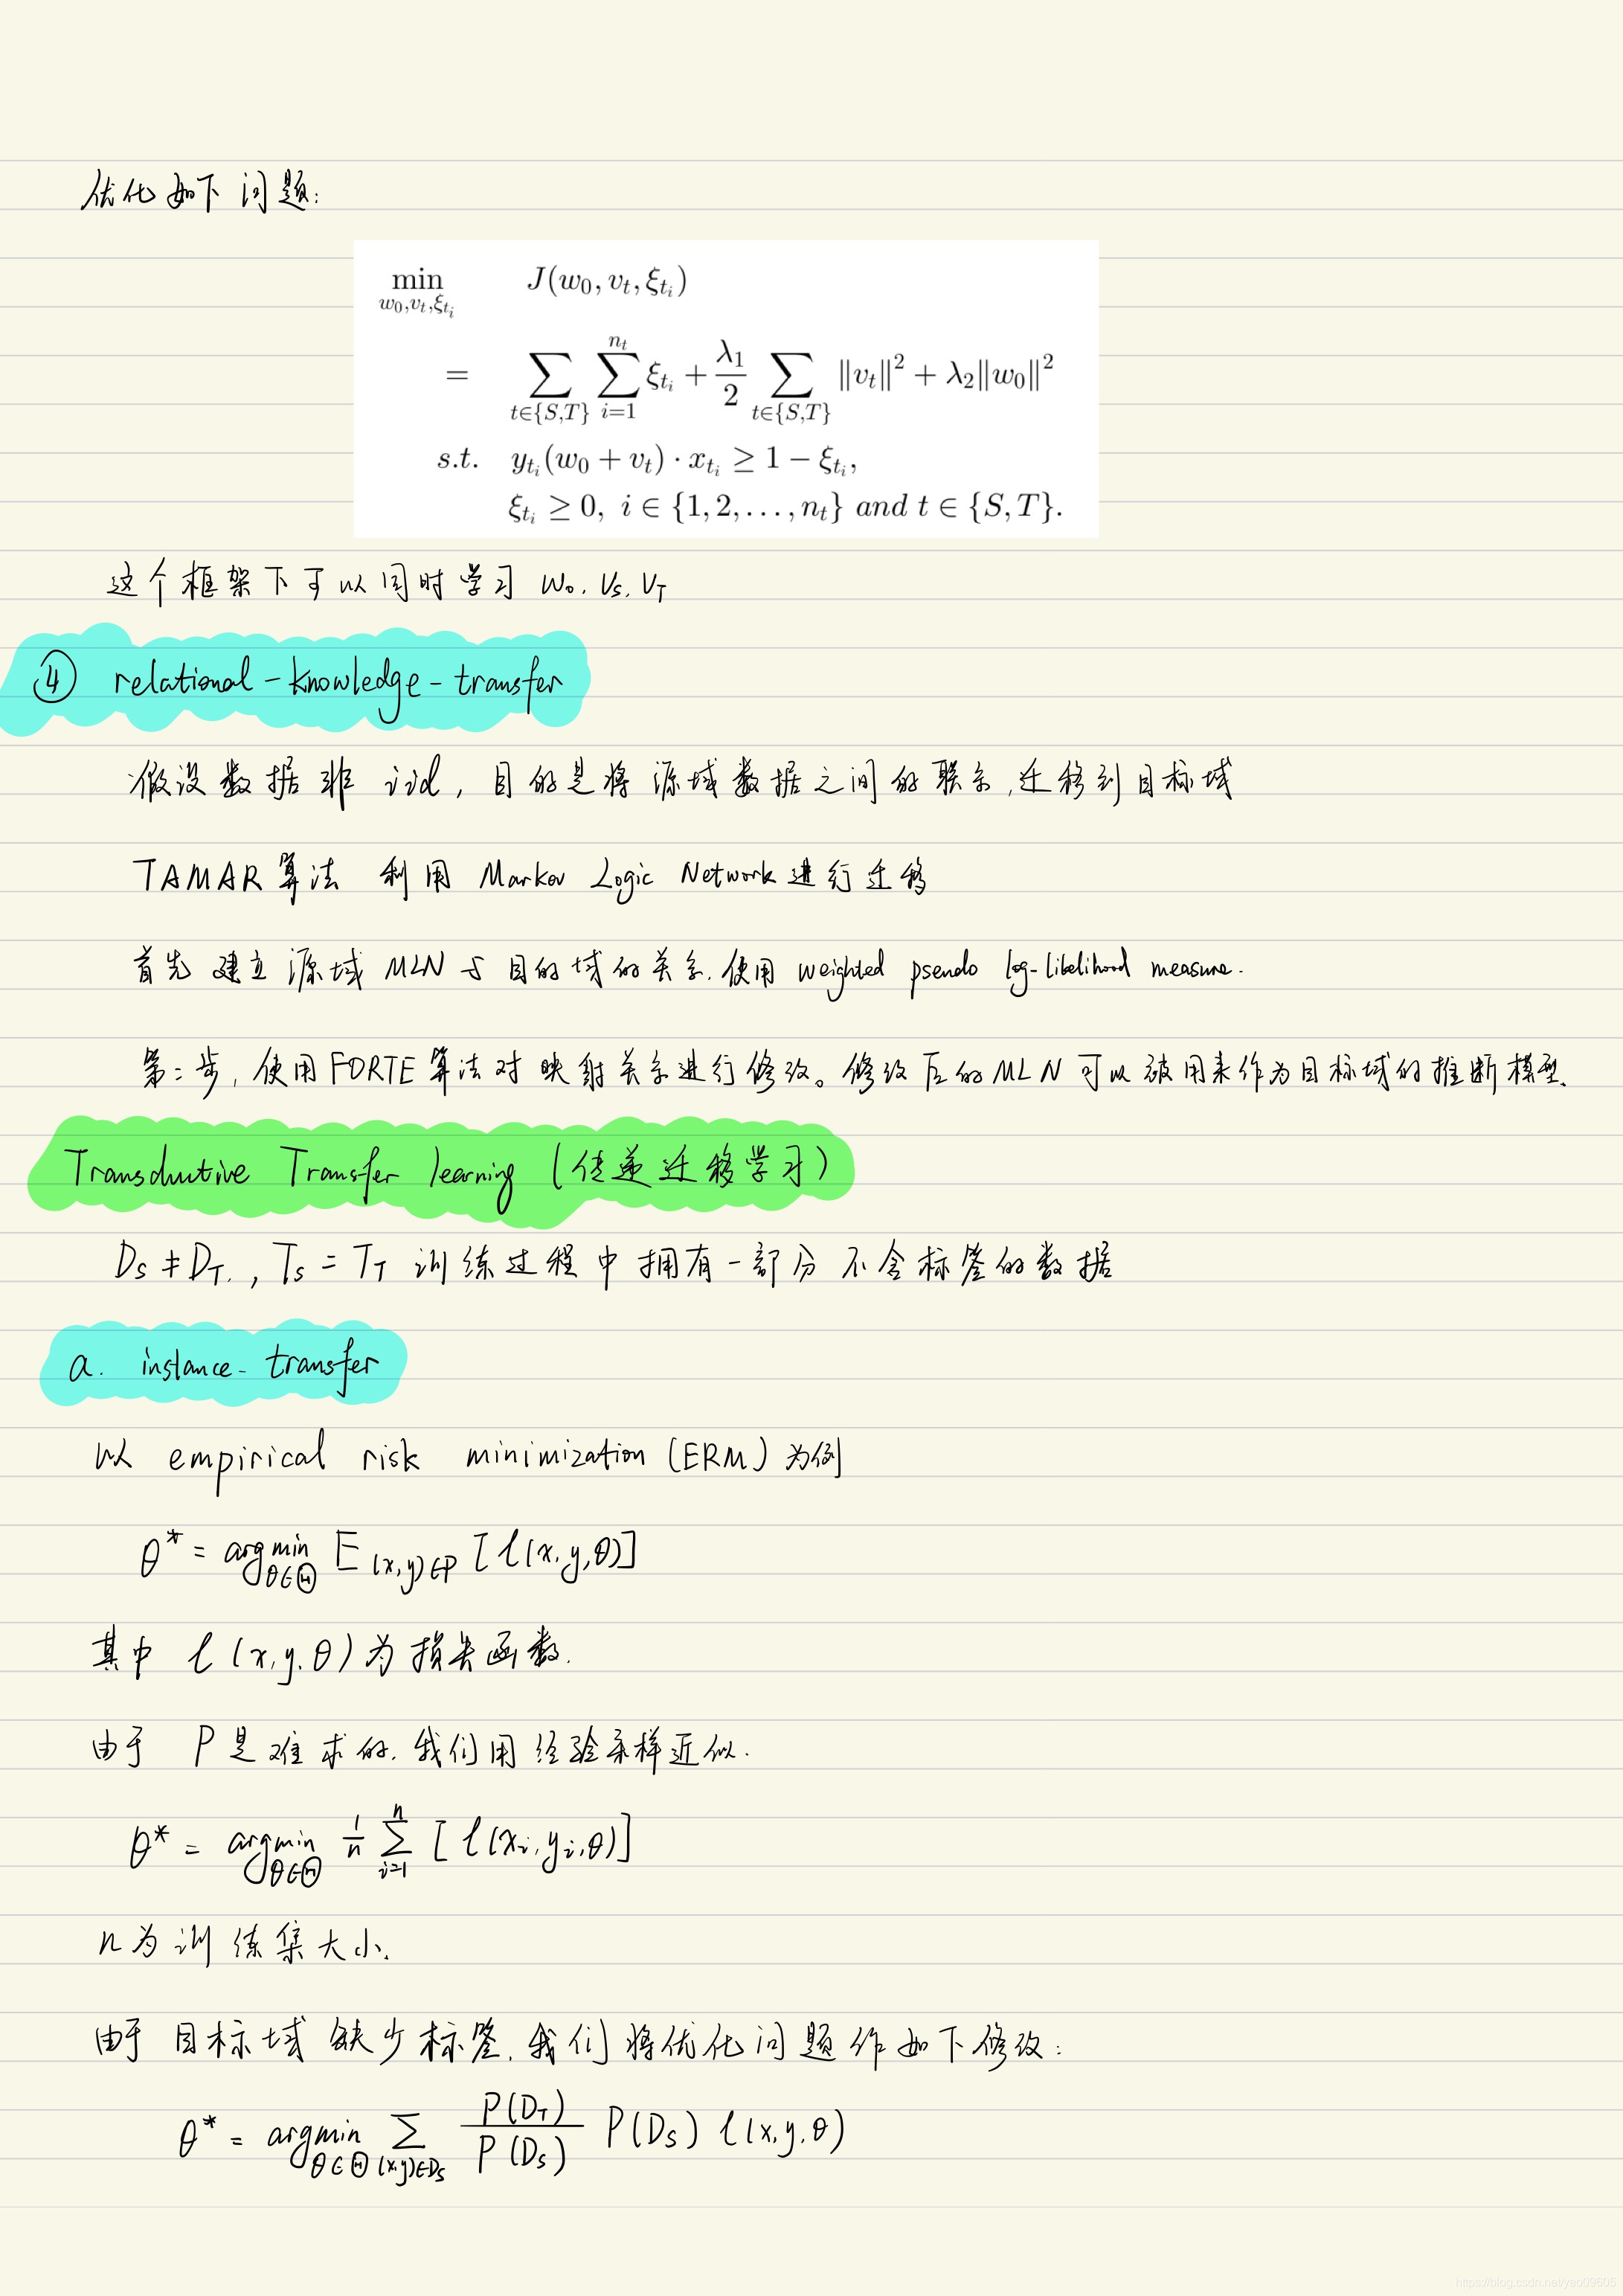 优化如下问题:
min w₀,vₜ,ξₜᵢ J(w₀, vₜ, ξₜᵢ)
= ∑_{t∈{S,T}} ∑_{i=1}^{nₜ} ξₜᵢ + λ₁/2 ∑_{t∈{S,T}} ‖vₜ‖² + λ₂‖w₀‖²
s.t. yₜᵢ(w₀ + vₜ) · xₜᵢ ≥ 1 − ξₜᵢ,
ξₜᵢ ≥ 0, i ∈ {1, 2, . . . , nₜ} and t ∈ {S, T}.
这个框架下可以同时学习 W₀. Vs. V_T
④ relational-knowledge-transfer
假设数据非 iid, 目的是将源域数据之间的联系,迁移到目标域
TAMAR算法 利用 Markov Logic Network进行迁移
首先 建立源域MLN与目的域的关系.使用 weighted pseudo log-likelihood measure.
第二步, 使用FORTE算法对映射关系进行修改。修改后的MLN可以被用来作为目标域的推断模型.
Transductive Transfer learning (传递迁移学习)
D_S ≠ D_T., T_S = T_T 训练过程中拥有一部分不含标签的数据
a. instance-transfer
以 empirical risk minimization (ERM) 为例
θ* = argmin_{θ∈Θ} E_{(x,y)∈P} [l(x,y,θ)]
其中 l(x,y,θ)为损失函数.
由于 P是难求的.我们用经验采样近似.
θ* = argmin_{θ∈Θ} 1/n ∑_{i=1}^{n} [l(xᵢ,yᵢ,θ)]
n为训练集大小.
由于目标域缺少标签,我们将优化问题作如下修改:
θ* = argmin_{θ∈Θ} ∑_{(x,y)∈D_S} P(D_T)/P(D_S) P(D_S) l(x,y,θ)
https://blog.csdn.net/yao09605